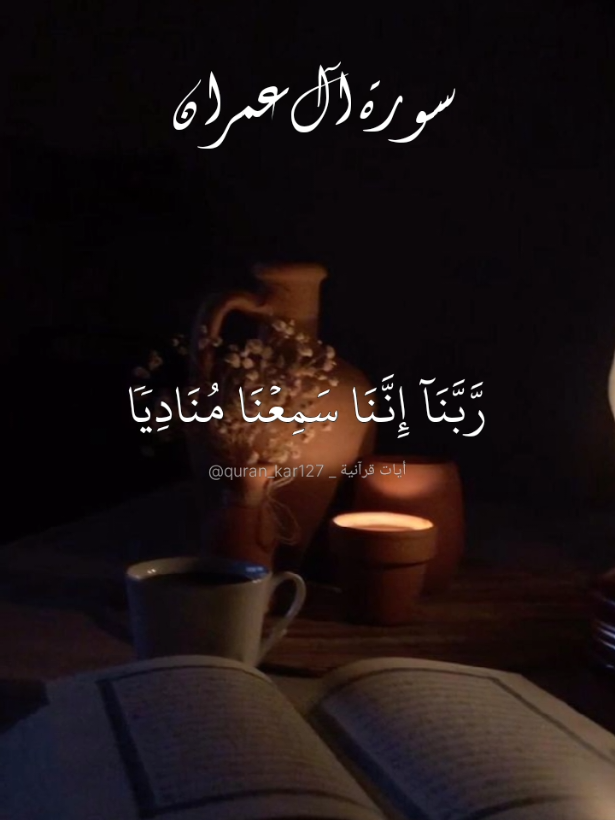 سورة آل عمران
رَّبَّنَآ إِنَّنَا سَمِعۡنَا مُنَادِيٗا
@quran_kar127 _ أيات قرآنية